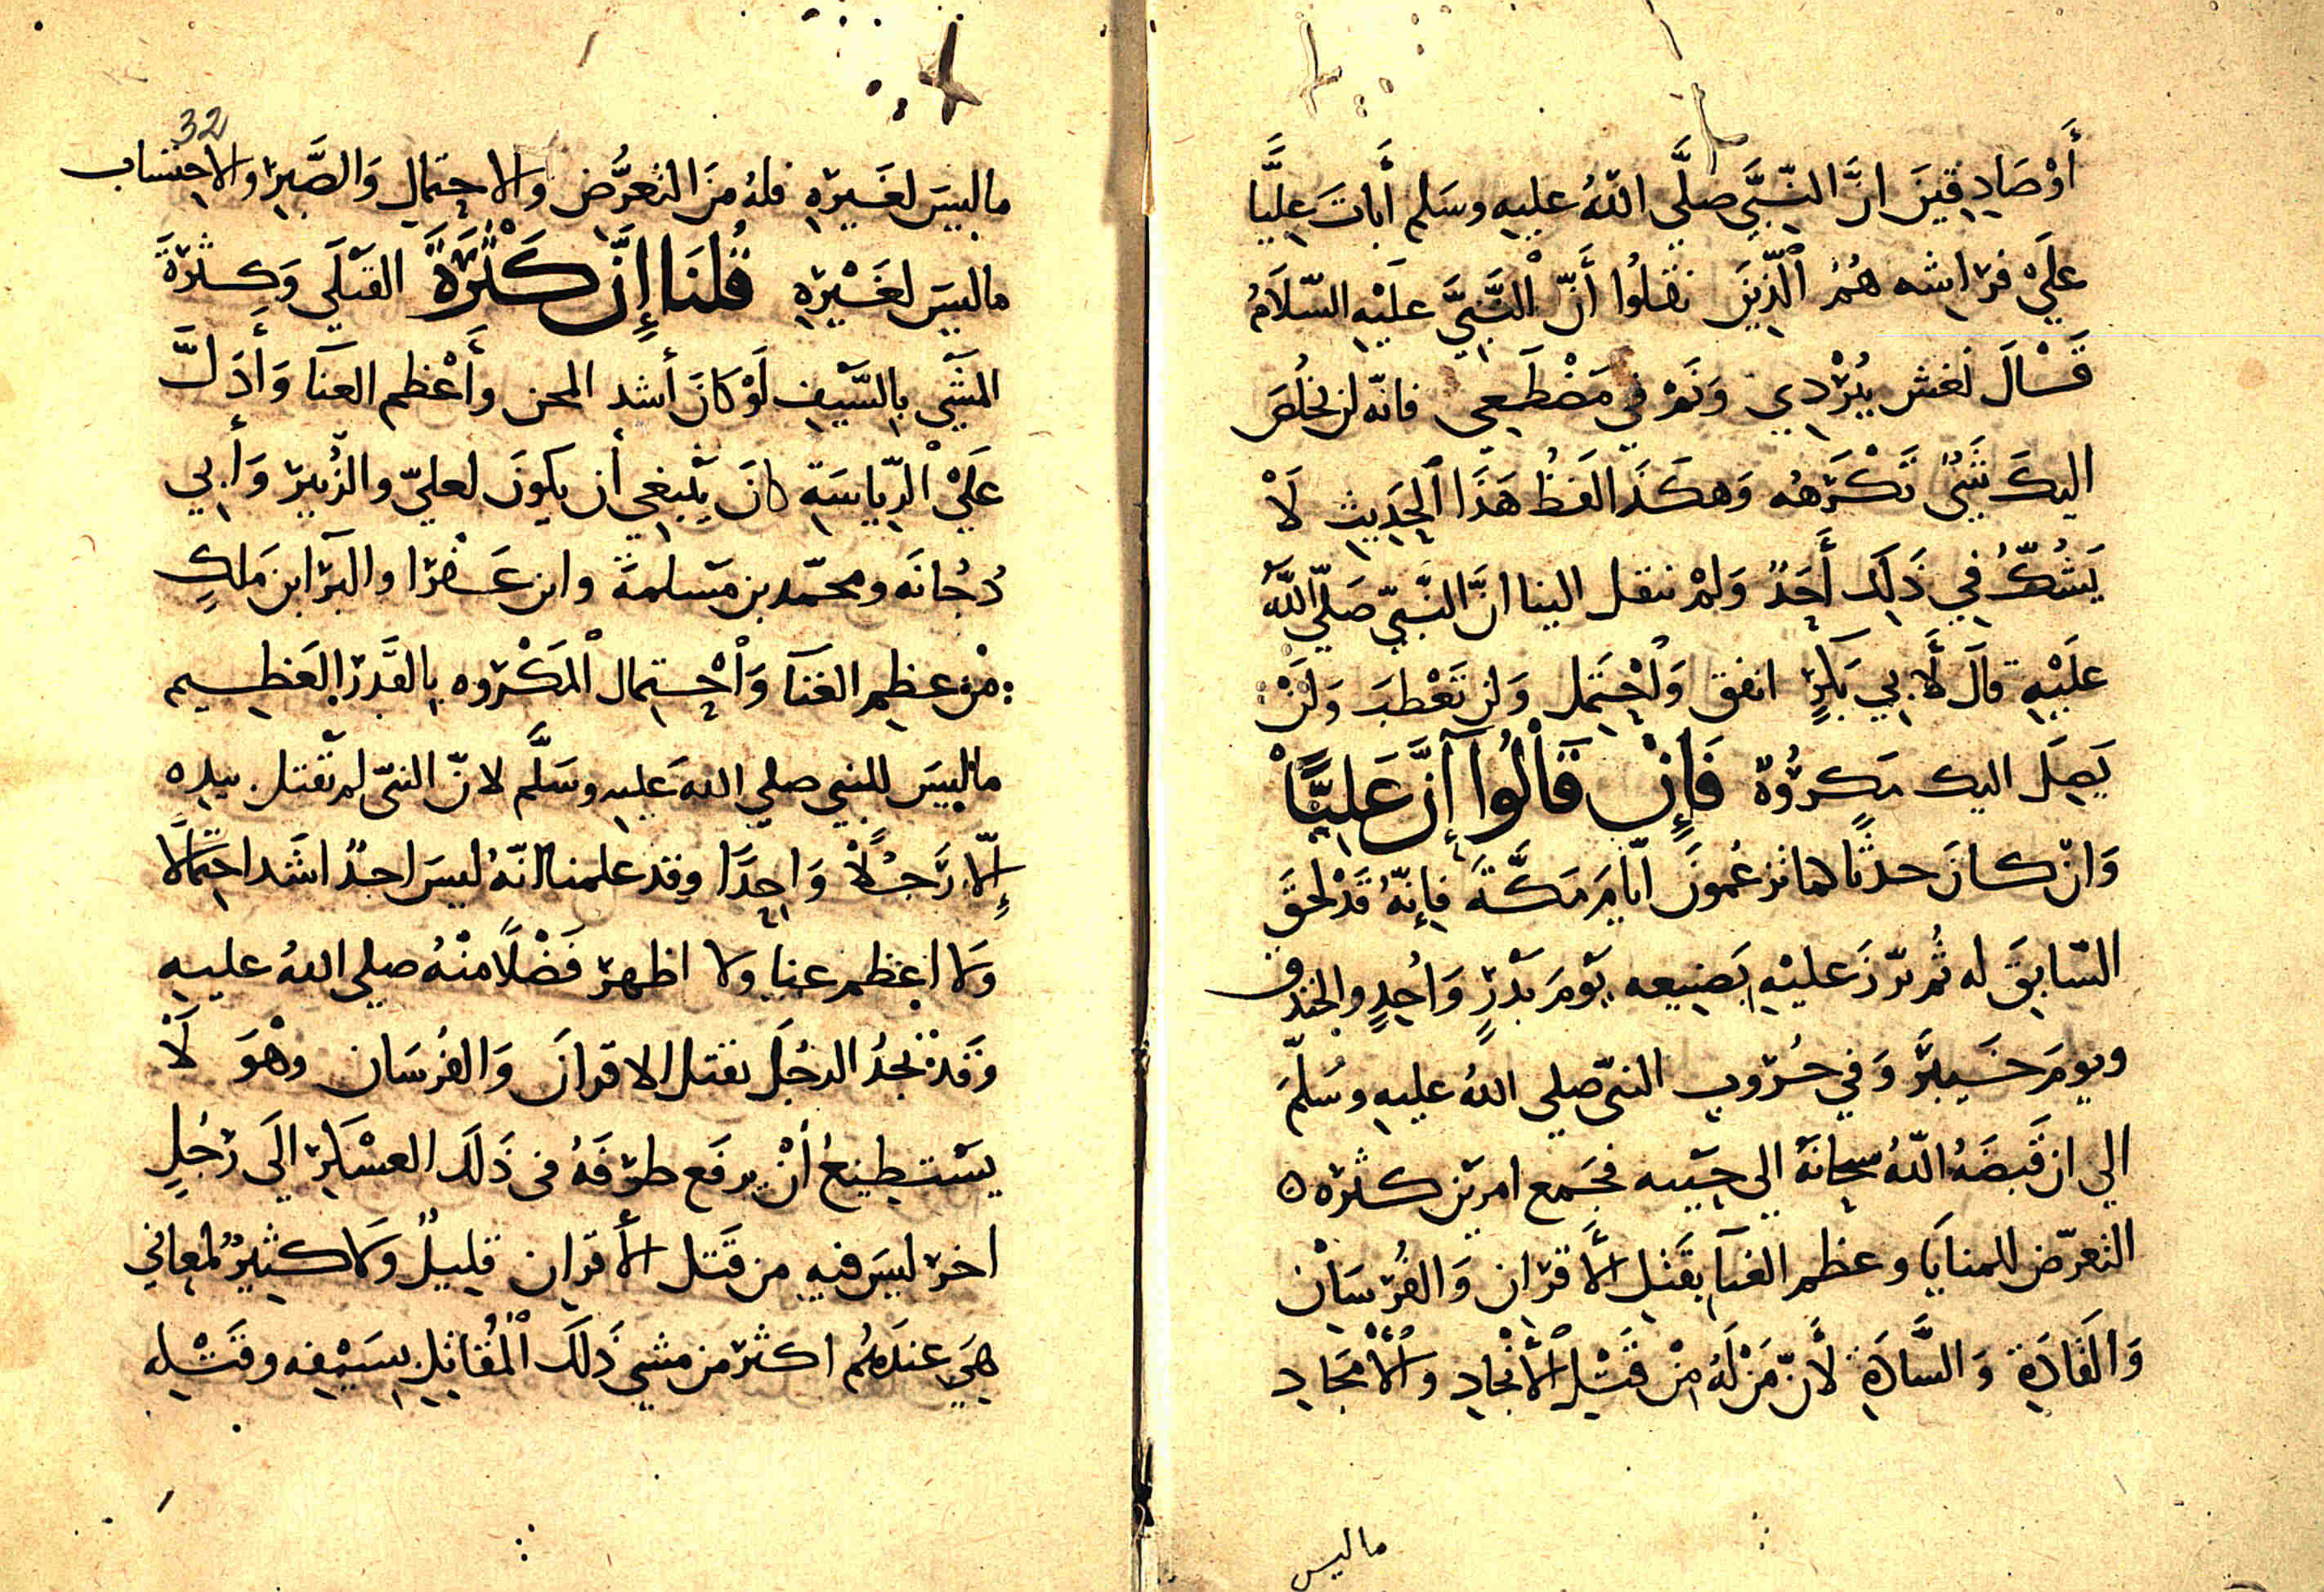 أَوْصَادِقِينَ انَّ النَّبِيَّ صلَّى اللهُ عليهِ وسَلم أَبَاتَ عَلِيًّا
عَلَيْ فرَاشه هُمُ الَّذِينَ نقلُوا أَنّ النَّبِيَّ عَلَيْهِ السّلَامُ
قَالَ تغش بُرْدِي وَنَمْ فِي مَضْطَجِعِي فانّه لن يخلُصَ
اليكَ شَيْ تَكْرَهُه وَهكَذَا لفظُ هَذَا الحَدِيثِ لَا
يَشُكُّ فِي ذَلِكَ أَحَدٌ وَلمْ ينقل الينا انَّ النَّبيّ صَلّي اللّه
عَلَيْهِ قَالَ لأَبِي بَكرٍ انفق وَاحْتَمِل وَلن تَعْطبَ وَلَنْ
يَصِلَ اليك مَكرُوهٌ فَإِنْ قَالُوا إِنَّ عَلِيًّا
وَانْ كانَ حدثًا كما تزعُمونَ ايّامَ مَكَّةَ فإِنّهُ قَدْ لحقَ
السّابقَ له ثُم برّزَ عليْهِ بصَنِيعه يَوْمَ بَدْرٍ وَاُحدٍ والخندق
ويومَ خَيبَرَ وَفي حُرُوبِ النبيّ صلي اللهُ عليهِ وسَلّمَ
الي ان قَبضَهُ اللّهُ سبحانَهُ الي جَنبه فجَمع امرين كثرة
التعرّض للمنايَا وعظم الغنآ بقَتلِ الأَقرَانِ وَالفُرْسَانْ
وَالقَادَةِ وَالسَّادَةِ لأَنّ مَنْ لَهُ مِنْ قَتْلِ الأَنْجَادِ وَالأَمْجَادِ
ماليس
32
ماليسَ لغَيرِهِ فلهُ مِنَ التعرُّضِ وَالاحتمالِ وَالصَّبرِ وَالاحتسابِ
ماليسَ لغَيْرِهِ قُلنَا إِنَّ كَثْرَةَ القتْلَي وَكثرَةَ
المَشْيِ بِالسَّيْفِ لَوْ كَانَ أشد المحن وأَعْظم العنَآ وَأَدَلَّ
عَلَيْ الرِّيَاسَةِ كانَ يَنْبغِي أن يكونَ لعليّ والزُّبيرِ وَأَبِي
دُجُانَه ومحمّد بن مَسلمةَ وابن عَفْرَا والبَرَا ابن مَلكِ
مْن عظِيمِ الغنَآ وَاحْتمالِ المَكْرُوه بِالقَدرِ العَظِيمِ
ماليسَ للنبي صلي الله عَليه وسَلَّم لانّ النبيّ لم يقتل بيده
إِلّا رَجُلًا وَاحِدَا وقد علمنا انّهُ ليسَ احدٌ اشَد احتمالا
وَلا اعْظم عنا ولا اظهر فَضْلًا منْهُ صلي اللهُ عليهِ
وَقَدْ نجدُ الرجُلَ يقتل الاقرانَ وَالفُرسَان وهْوَ لَا
يسْتطِيعُ أَنْ يرفَع طرْفَهُ في ذَلكَ العسْكَرِ الَي رَجُلٍ
اخر ليسَ فيهِ من قَتل الأَقرانِ قليلٌ وَلَا كثيرٌ لمعاني
هِيَ عندَهُم اكثر من مشي ذَلكَ الْمُقاتِلِ بسَيْفِه وقَتْلِه